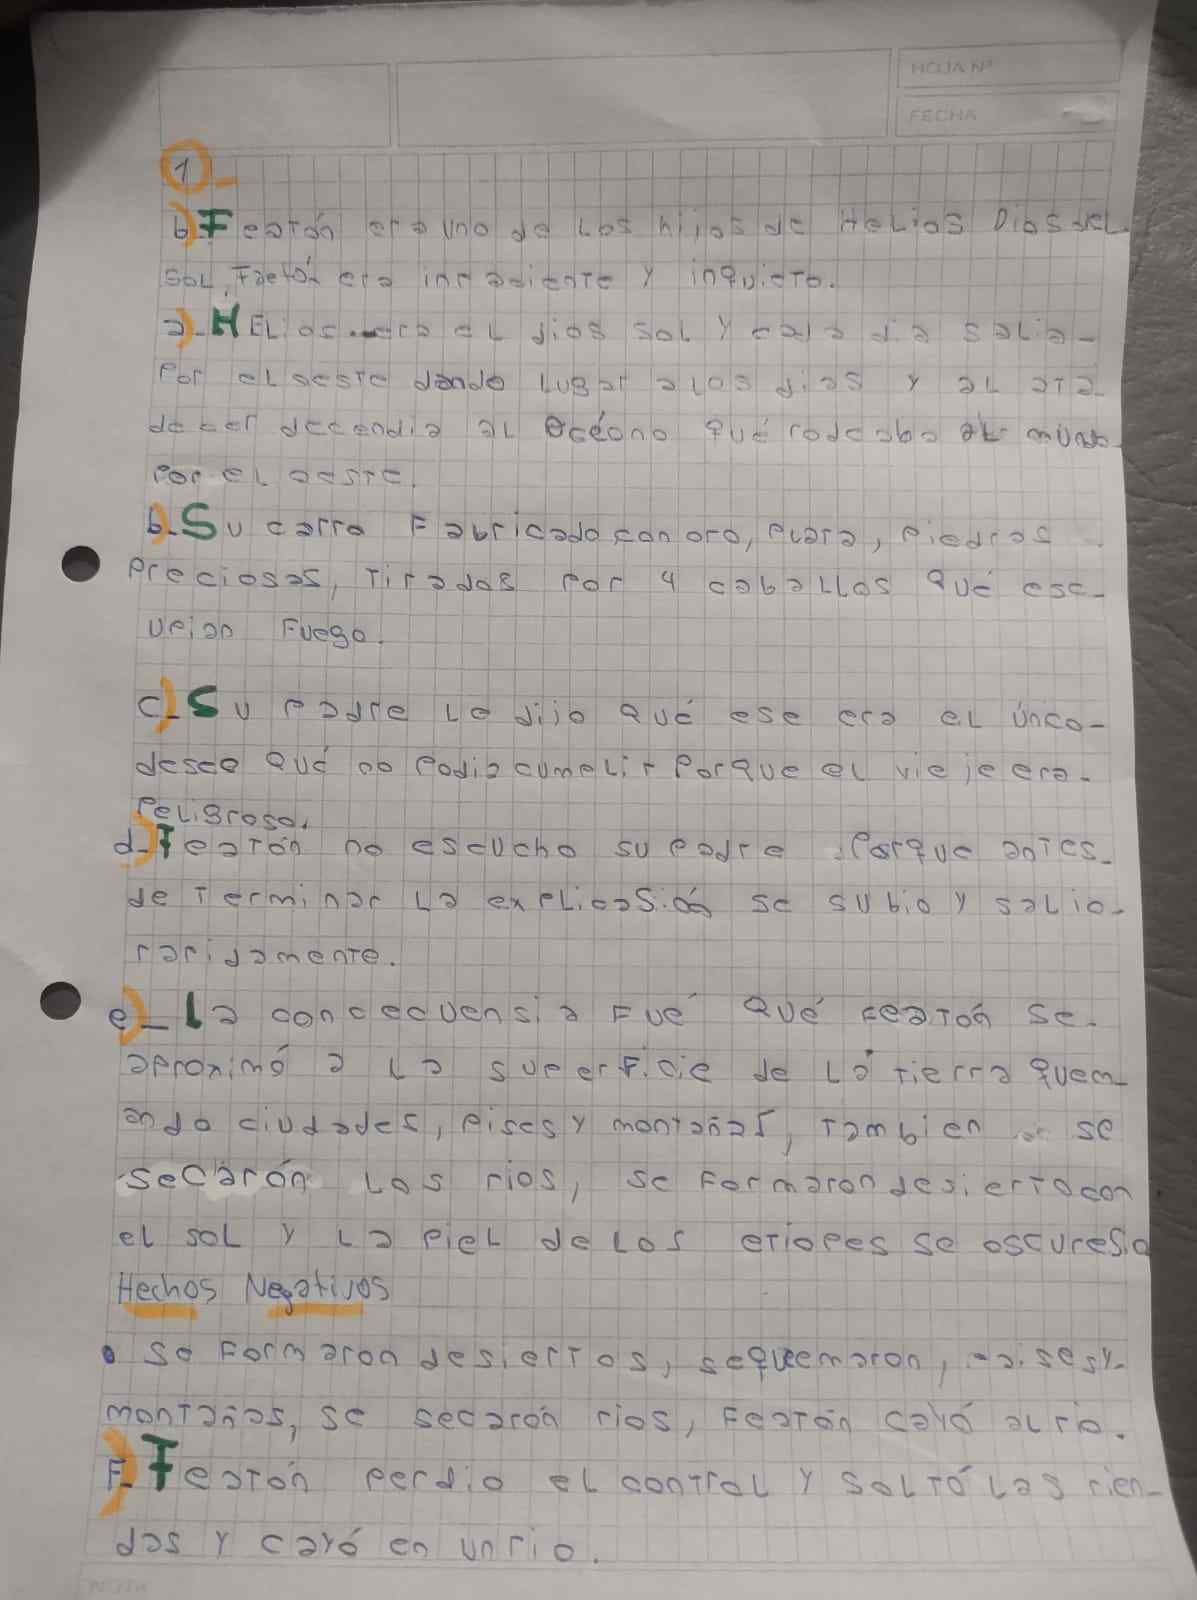 HOJA Nº
FECHA
1-
b) Featón era uno de los hijos de Helios Dios del
sol, Faetón era impaciente y inquieto.
a)- Helios era el dios sol y cada dia salia-
por el seste dando lugar a los dias y al ata-
decer decendia al Océono qué rodeaba al mundo
por el oeste.
b-) Su carro Fabricado con oro, plata, piedras
preciosas, tirados por 4 caballos qué esc-
upian Fuego.
c)- Su padre le dijo qué ese era el únco-
deseo qué no podia cumplir porque el viaje era-
peligroso.
d-) Featón no escucho su padre porque antes-
de terminar la explicasión se subio y salio-
rapidamente.
e)- La concecuensia Fué qué Featón se-
aproximó a la superficie de la tierra quem-
ando ciudades, pises y montañas, tambien se
secarón los rios, se Formaron desierto con
el sol y la piel de los etiopes se oscuresio
Hechos Negativos
• Se Formaron desiertos, sequemaron, paises y-
montañas, se secarón rios, Featón cayó al rio.
F-) Featón perdio el control y saltó las rien-
das y cayó en un rio.
NOTA